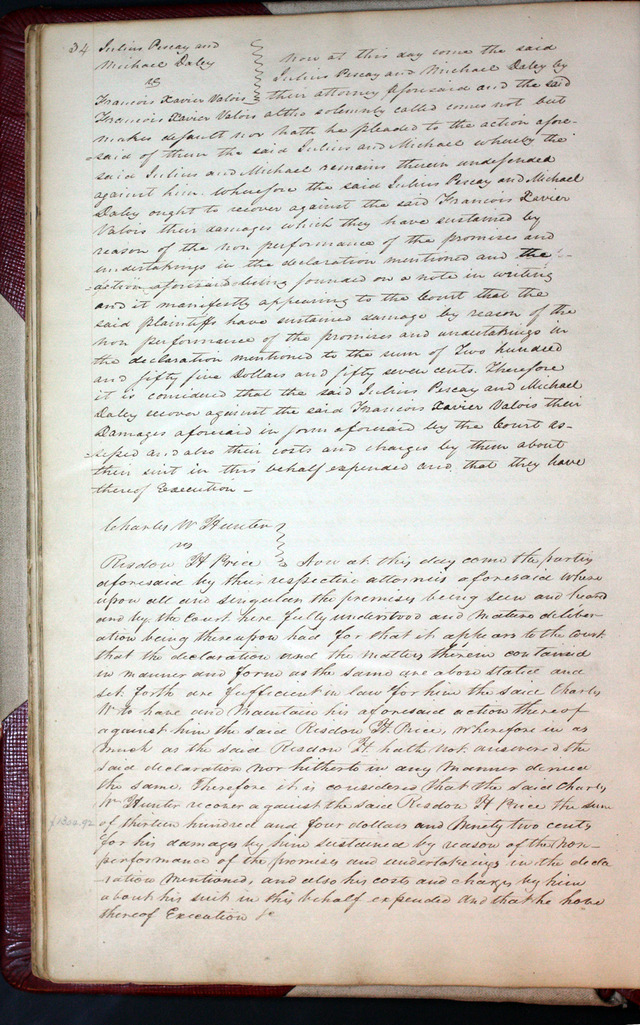 34
Julius Pescay and
Michael Daley
vs
Francois Xavier Valois
Now at this day come the said
Julius Pescay and Michael Daley by
their attorney aforesaid and the said
Francois Xavier Valois altho solemnly called comes not but
makes default nor hath he pleaded to the action afore-
-said of them the said Julius and Michael whereby the
said Julius and Michael remains therein undefended
against him. Wherefore the said Julius Pescay and Michael
Daley ought to recover against the said Francois Xavier
Valois their damages which they have sustained by
reason of the non performance of the promises and
undertakings in the declaration mentioned and the
action aforesaid being founded on a note in writing
and it manifestly appearing to the Court that the
said plaintiffs have sustained damage by reason of the
non performance of the promises and undertakings in
the declaration mentioned to the sum of Two hundred
and fifty five Dollars and fifty seven cents. Therefore
it is considered that the said Julius Pescay and Michael
Daley recover against the said Francois Xavier Valois their
Damages aforesaid in form aforesaid by the Court as-
-sessed and also their costs and charges by them about
their suit in this behalf expended and that they have
thereof Execution -
Charles W Hunter
vs
Risdon H Price Now at this day come the partis
aforesaid by their respective attornies aforesaid where
upon all and singular the premises being seen and heard
and by the Court here fully understood and mature deliber-
ation being thereupon had for that it appears to the Court
that the declaration and the matters therein contained
in manner and form as the same are above stated and
set forth are sufficient in law for him the said Charles
W to have and maintain his aforesaid action thereof
against him the said Risdon H. Price, wherefore in as
much as the said Risdon H hath not answered the
said declaration nor hitherto in any manner denied
the same. Therefore it is considered that the said Charles
W Hunter recover against the said Risdon H Price the sum
$1304.92
of thirteen hundred and four dollars and Ninety two cents
for his damages by him sustained by reason of the non-
performance of the promises and undertakings in the decla
-ration mentioned, and also his costs and charges by him
about his suit in this behalf expended and that he have
thereof Execution &c